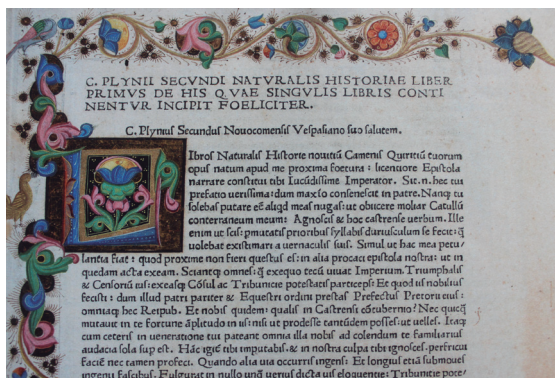 C. PLYNII SECVNDI NATVRALIS HISTORIAE LIBER
PRIMVS DE HIS QVAE SINGVLIS LIBRIS CONTI
NENTVR INCIPIT FOELICITER.
C. Plynius Secundus Nouocomensis Vespasiano suo salutem.
L
Ibros Naturalis Historie nouitiũ Camenis Quiritiũ tuorum
opus natum apud me proxima foetura: licentiore Epistola
narrare constitui tibi Iucũdissime Imperator. Sit. n. hec tui
prefatio uerissima: dum maxĩo consenescit in patre. Nanq; tu
solebas putare eẽ aliqd meas nugas: ut obiicere moliar Catullũ
conterraneum meum: Agnoscis & hoc castrense uerbum. Ille
enim ut scis: pmutatis prioribus syllabis duriusculum se fecit:
uolebat existimari a uernaculis suis. Simul ut hac mea petu/
lantia fiat: quod proxime non fieri questus es: in alia procaci epistola nostra: ut in
quedam acta exeam. Sciantq; omnes: exequo tecũ uiuat Imperium. Triumphalis
& Censorius
fecisti: dum illud patri pariter & Equestri ordini prestas Prefectus Pretorii eius:
omniaq; hec Reipub. Et nobis quidem: qualis in Castrensi cõtubernio? Nec quicq̃
mutauit in te fortune ãplitudo in iis: nisi ut prodesse tantũdem posses: ut uelles. Itaq;
cum ceteris in ueneratione tui pateant omnia illa nobis ad colendum te familiarius
audacia sola sup est. Hãc igit tibi imputabis: & in nostra culpa tibi ignosces. perfricui
faciẽ nec tamen profeci. Quando alia uia occurris ingens: Et longius etiã submoues
ingenii fascibus. Fulgurat in nullo unq̃ uerius dicta uis eloquentie: Tribunitie pote/